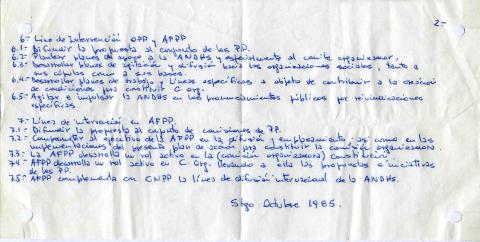 2-
6- Line de Intervención OPP y AFPP
6.1- Difundir la propuesta al conjunto de los P.P.
6.2- Plantear planes de apoyo a la ANDHS y especialmente al comite organizador.
6.3- Desarrollar planes de agitación y difusión hacia las organizaciones sociales, tanto a
sus cúpulas como a sus bases.
6.4- Desarrollar planes de trabajo y lineas específicas a objeto de contribuir a la creación
de condiciones para constituir C. Org.
6.5- Agitar e impulsar la ANDHS en los pronunciamientos públicos por reivindicaciones
específicas.
7- Linea de intervención en AFPP.
7.1- Difundir la propuesta al conjunto de comisiones de P.P.
7.2- Comprometer al ejecutivo de la AFPP en la difusión y emplazamiento, así como en las
implementaciones del presente plan de acción para constituir la comisión organizadora.
7.3- La AFPP desarrolla un rol activo en la (comisión organizadora) constitución
7.4- AFPP desarrolla un rol activo en C. Org. llevando a ella las propuestas e iniciativas
de los P.P.
7.5- AFPP complementa con CNPP la línea de difusión internacional de la ANDHS.
Stgo Octubre 1985.